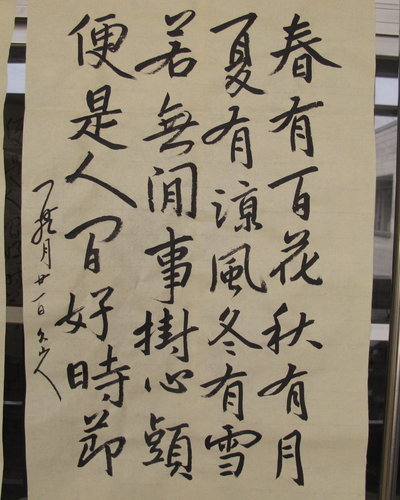 春有百花秋有月
夏有涼風冬有雪
若無閒事樹心頭
便是人間好時節
月廿一日